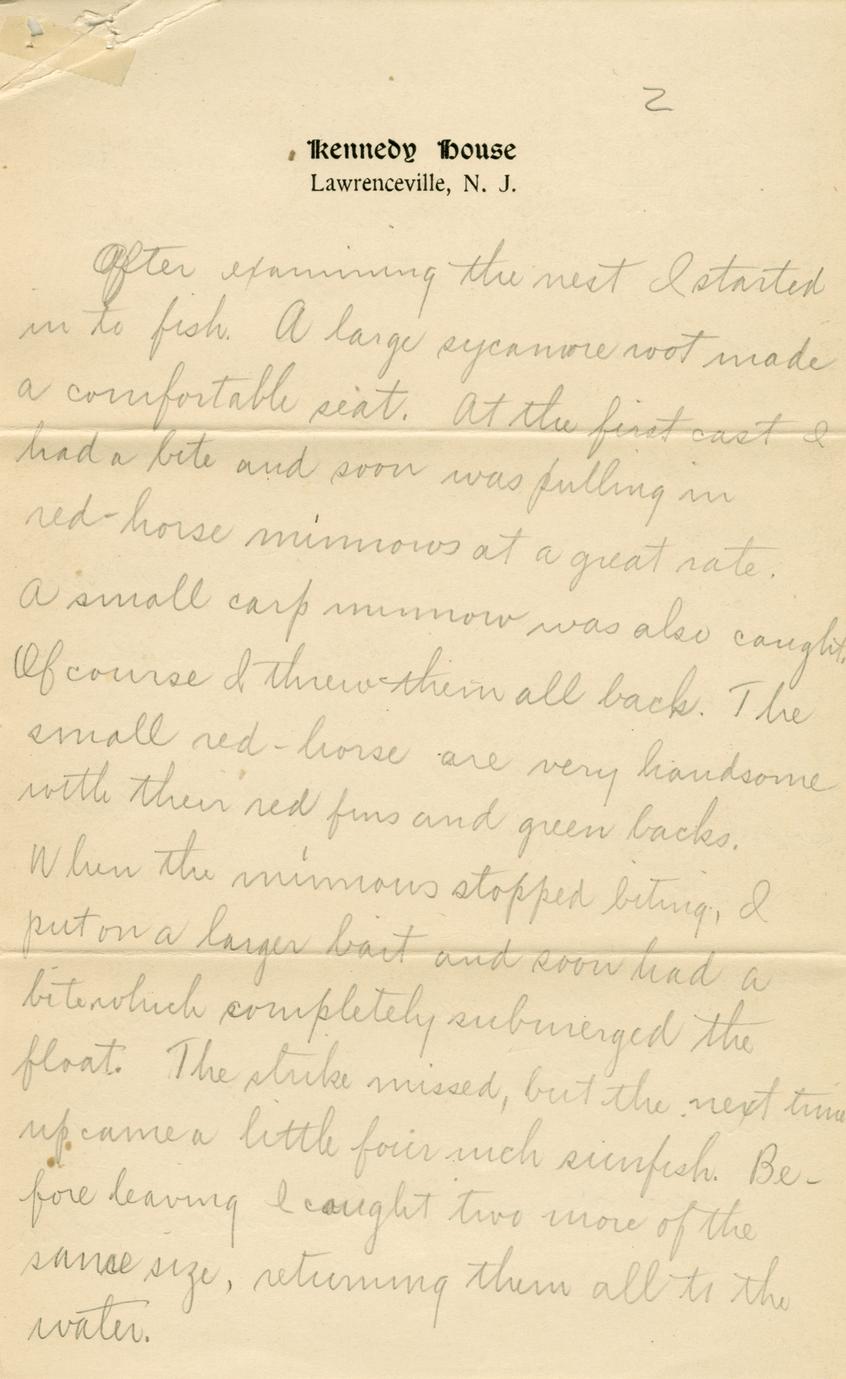 2
Kennedy House
Lawrenceville, N. J.
After examining the nest I started
in to fish. A large sycamore root made
a comfortable seat. At the first cast I
had a bite and soon was pulling in
red-horse minnows at a great rate.
A small carp minnow was also caught.
Of course I threw them all back. The
small red-horse are very handsome
with their red fins and green backs.
When the minnows stopped biting, I
put on a larger bait and soon had a
bite which completely submerged the
float. The strike missed, but the next time
up came a little four inch sunfish. Be-
fore leaving I caught two more of the
same size, returning them all to the
water.